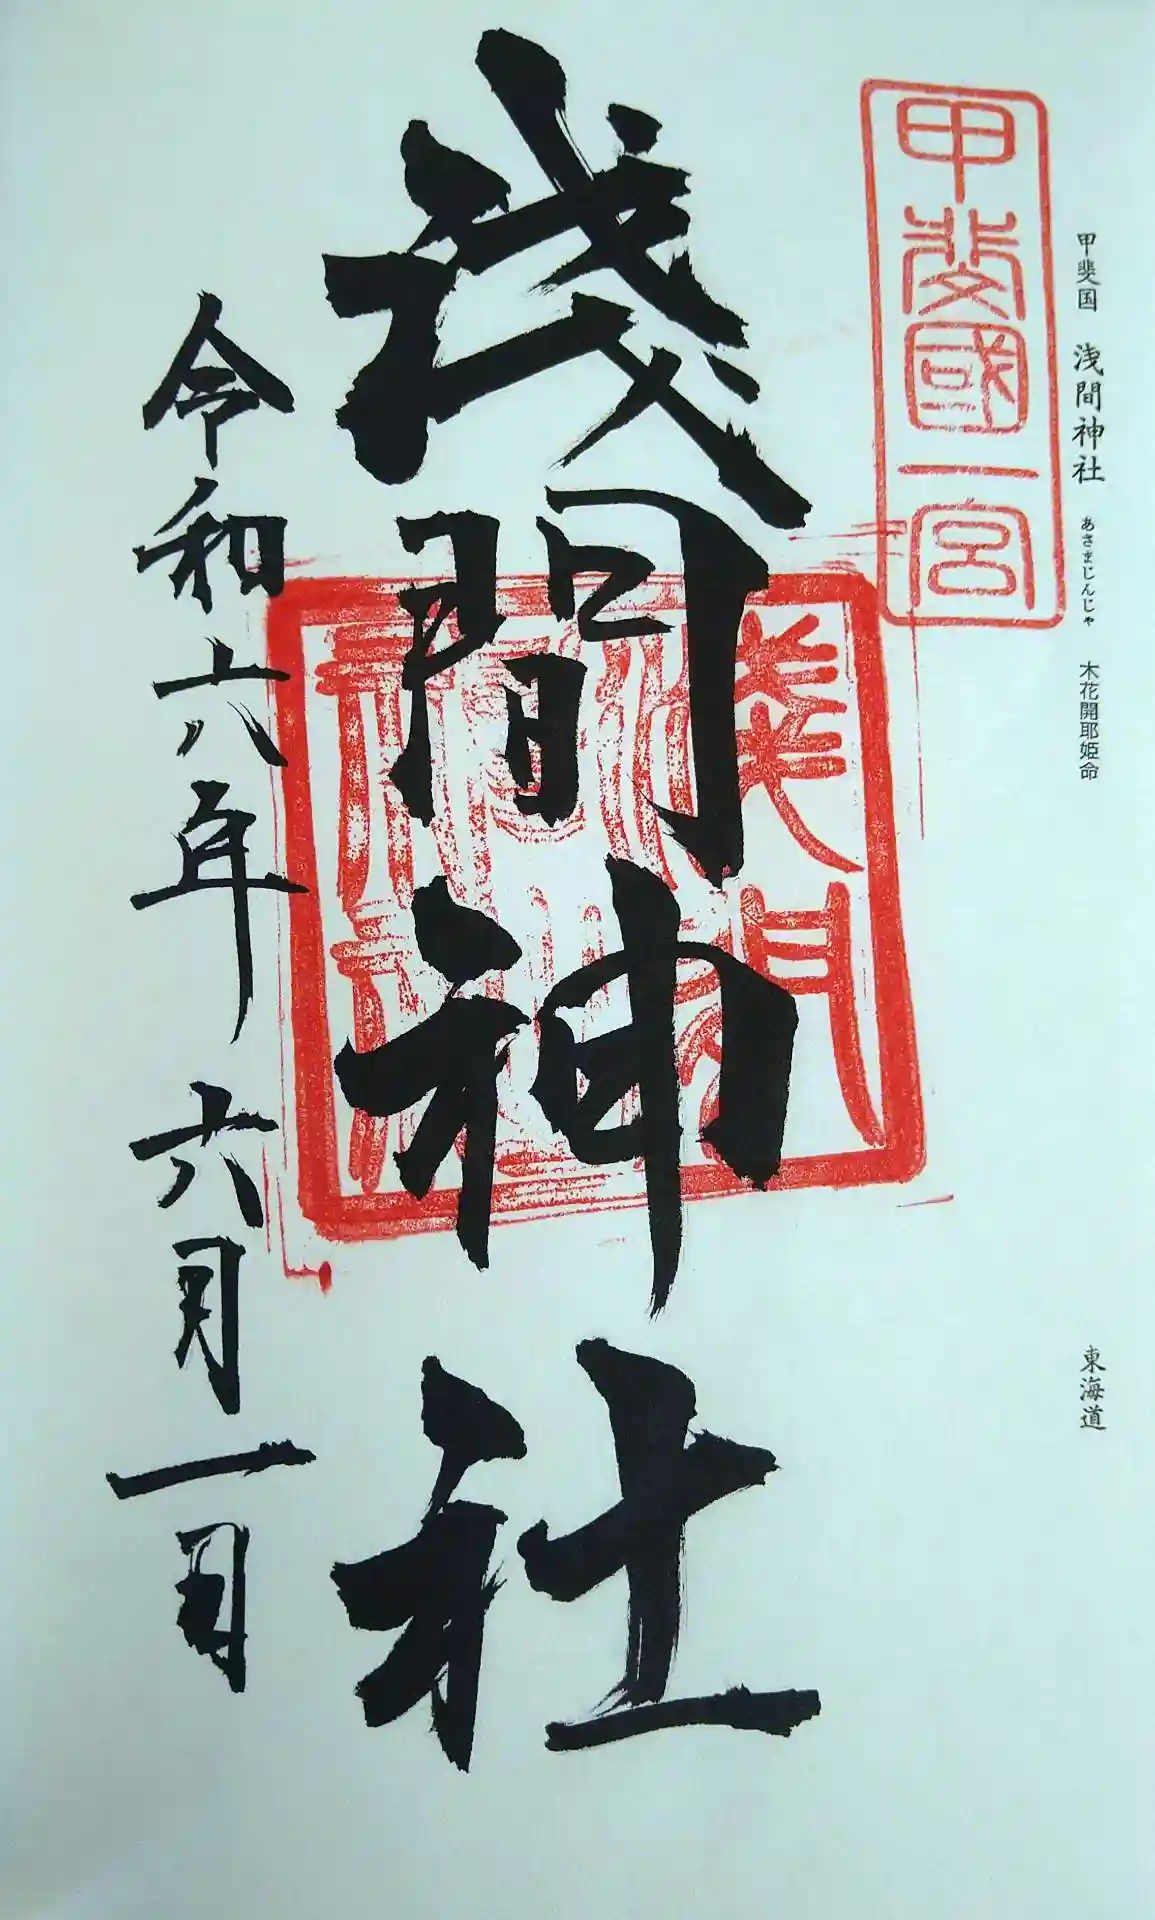 甲斐国 浅間神社 あさまじんじゃ 木花開耶姫命
東海道
甲斐國一宮
淺間神社
淺間神社
令和六年 六月一日